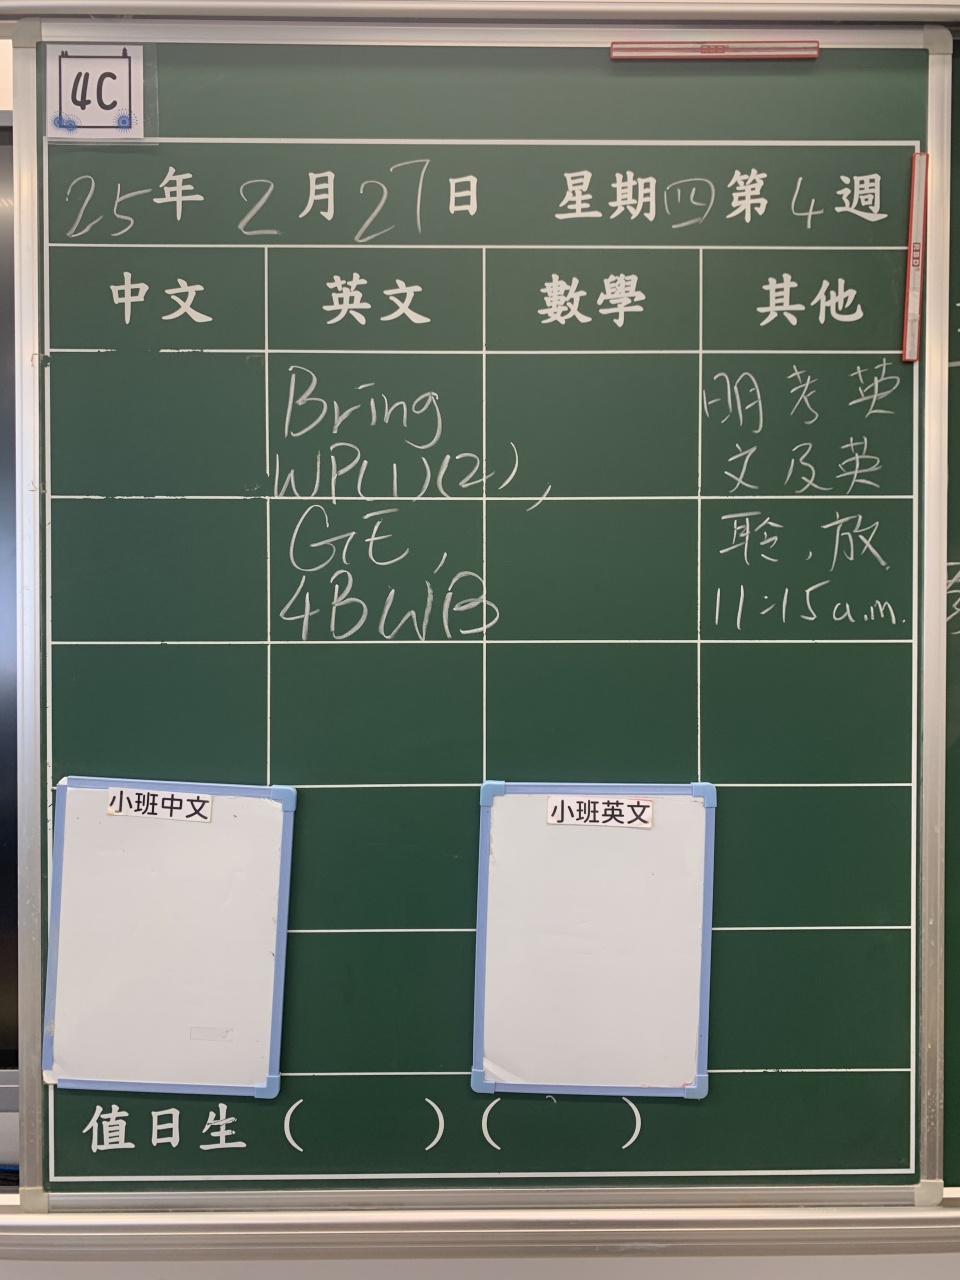 4C
25年2月27日 星期四第4週
中文 英文 數學 其他
Bring
WP(1)(2),
GE,
4BWB
明考英
文及英
聆,放
11:15a.m.
小班中文
小班英文
值日生( )( )